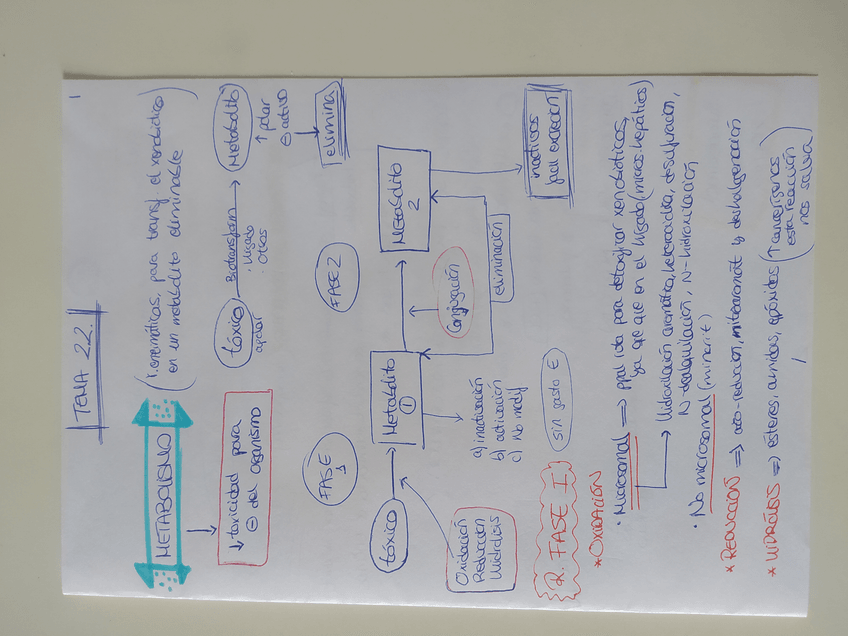 1
TEMA 2.2.
METABOLISMO
(r. enzimáticas, para transf el xenobiótico
en un metabolito eliminable)
↓ toxicidad para
⊖ del organismo
tóxico
apolar
Biotransform
· hígado
· Otros
Metabolito
↑ polar
⊖ activo
elimina
FASE 1
FASE 2
tóxico
METABOLITO
①
METABOLITO
2
Oxidación
Reducción
Hidrólisis
Conjugación
eliminación
a) inactivación
b) activación
c) No modif
inactivos
fácil excreción
sin gasto E
R. FASE I
* OXIDACIÓN
· Microsomal ⇒ ppal ida para detoxificar xenobióticos,
ya que que en el hígado (micros hepáticos)
Hidroxilación aromática, desulfuración,
N-dealquilación, N-hidroxilación
· No microsomal (minorit)
* REDUCCIÓN ⇒ azo-reducción, nitroaromát y deshalogenación
* HIDRÓLISIS ⇒ ésteres, amidas, epóxidos (↑ cancerígenos
esta reacción
nos salva)